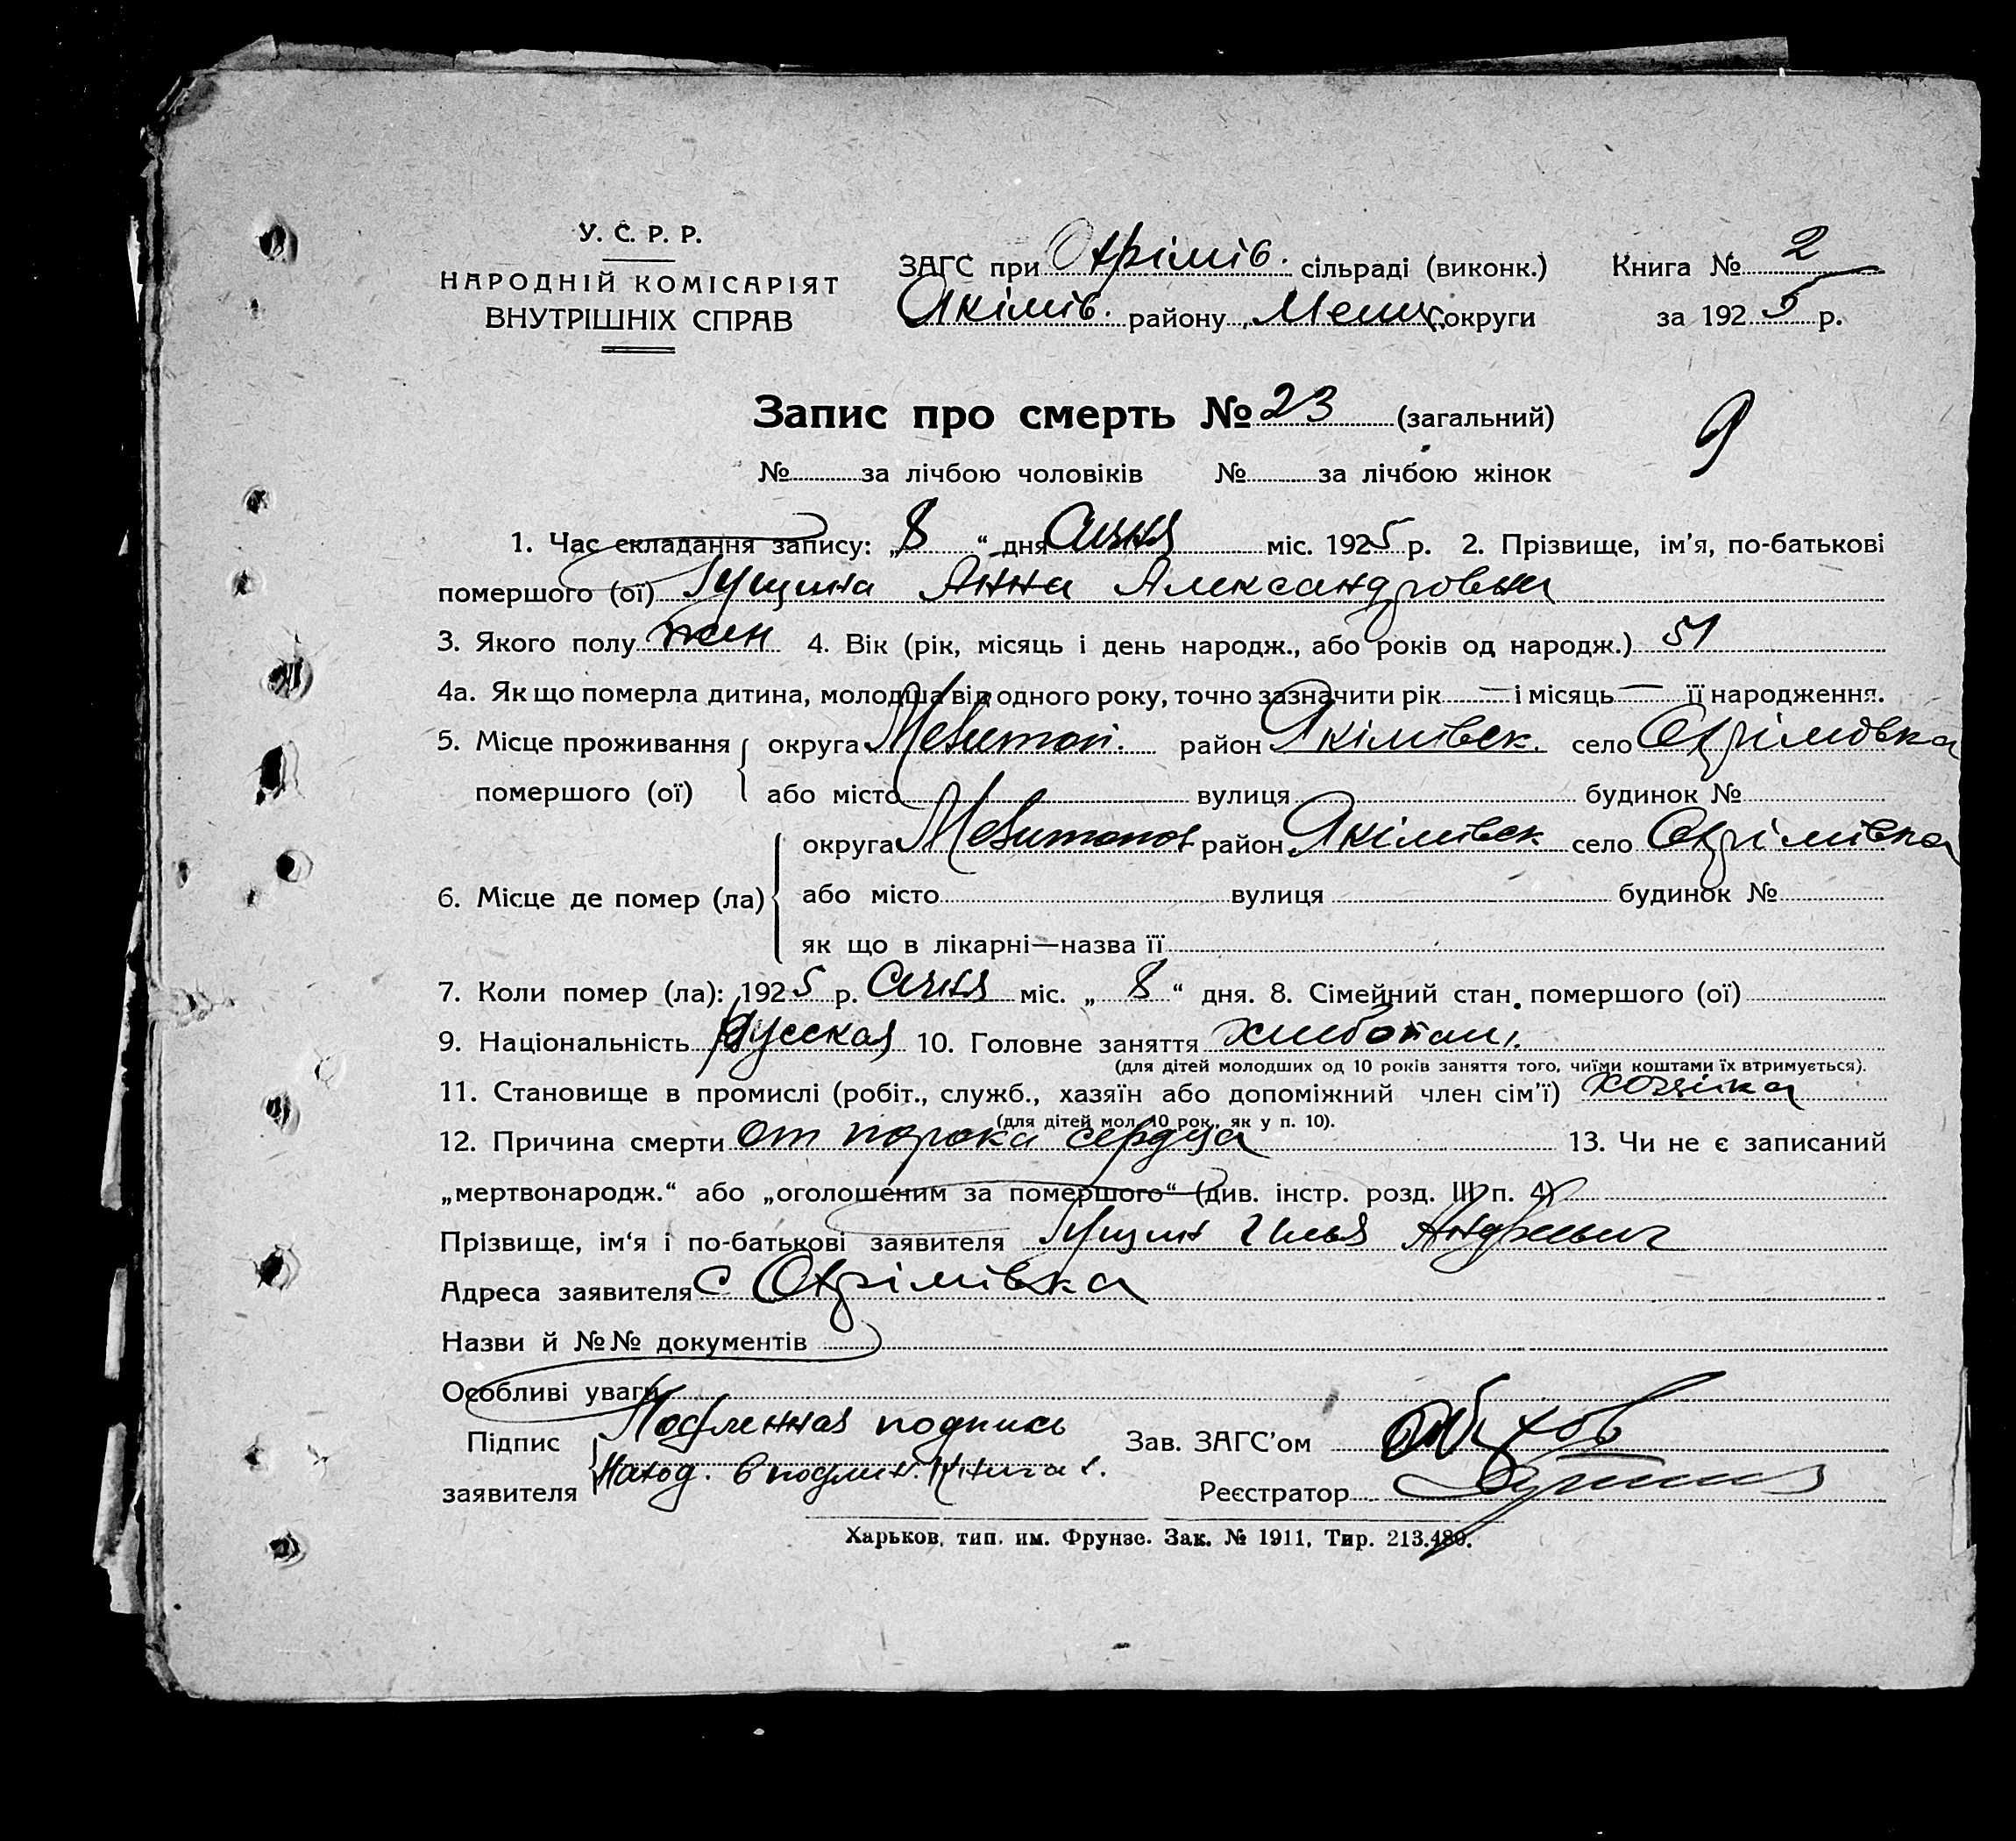 У. С. Р. Р.
НАРОДНІЙ КОМІСАРІЯТ
ВНУТРІШНІХ СПРАВ
ЗАГС при Охрімів. сільраді (виконк.) Книга № 2
Якімів. району, Меліт. округи за 1925 р.
Запис про смерть № 23 (загальний)
9
№ за лічбою чоловіків № за лічбою жінок
1. Час складання запису: „8“ дня січня міс. 1925 р. 2. Прізвище, ім'я, по-батькові
помершого (ої) Гущина Анна Александровна
3. Якого полу жен 4. Вік (рік, місяць і день народж., або років од народж.) 51
4а. Як що померла дитина, молодша від одного року, точно зазначити рік — і місяць — її народження.
5. Місце проживання округа Мелітоп. район Якімівск. село Охрімовка
помершого (ої) або місто вулиця будинок №
округа Мелітопол район Якімівск село Охрімівка
6. Місце де помер (ла) або місто вулиця будинок №
як що в лікарні—назва її
7. Коли помер (ла): 1925 р. січня міс. „8“ дня. 8. Сімейний стан помершого (ої)
9. Національність русская 10. Головне заняття хлибопаш.
(для дітей молодших од 10 років заняття того, чиїми коштами їх втримується).
11. Становище в промислі (робіт., служб., хазяїн або допоміжний член сім'ї) хозяйка
(для дітей мол. 10 рок., як у п. 10).
12. Причина смерти от порока сердца 13. Чи не є записаний
„мертвонародж.“ або „оголошеним за помершого“ (див. інстр. розд. III п. 4)
Прізвище, ім'я і по-батькові заявителя Гущин Илья Андреевич
Адреса заявителя с Охрімівка
Назви й №№ документів
Особливі уваги
Підпис Подленная подпись Зав. ЗАГС'ом
заявителя Наход. в подлин. книгах. Реєстратор
Харьков, тип. им. Фрунзе. Зак. № 1911, Тир. 213.480.